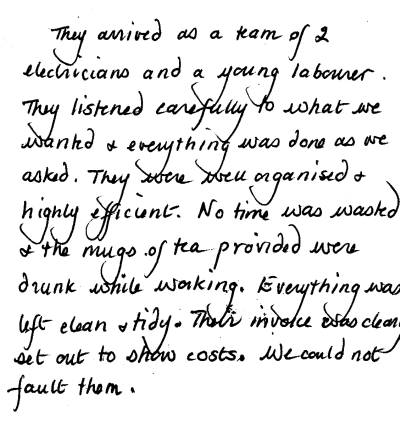 They arrived as a team of 2
electricians and a young labourer.
They listened carefully to what we
wanted & everything was done as we
asked. They were well organised &
highly efficient. No time was wasted
& the mugs of tea provided were
drunk while working. Everything was
left clean & tidy. Their invoice was clearly
set out to show costs. We could not
fault them.